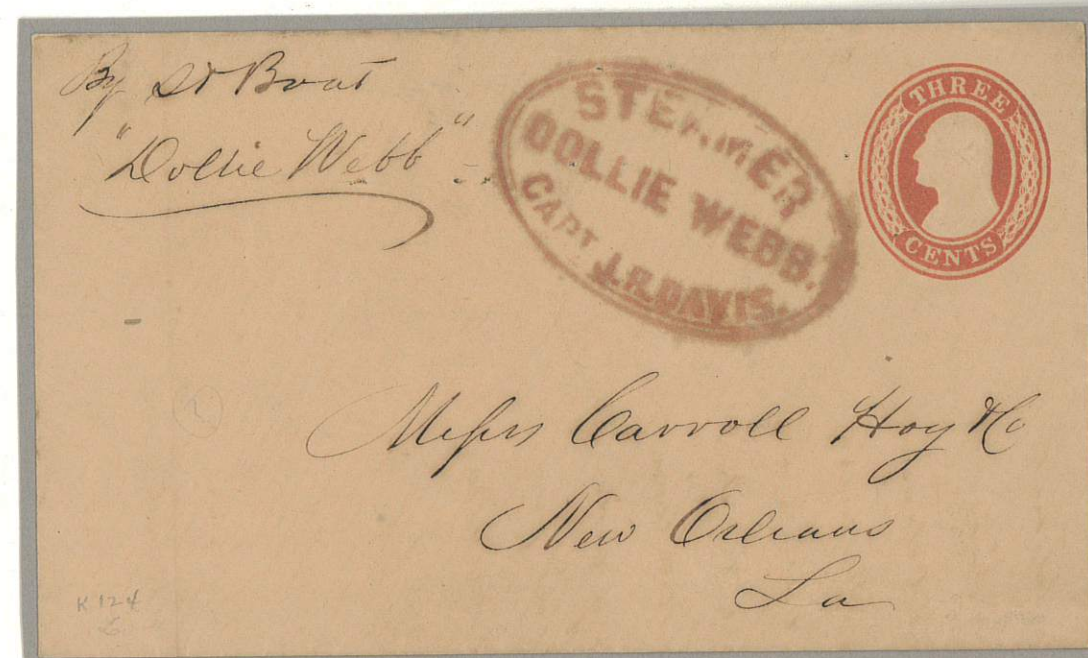 By St Boat
"Dollie Webb"
STEAMER
DOLLIE WEBB.
CAPT J.R. DAVIS.
THREE
CENTS
Messrs Carroll Hoy & Co
New Orleans
La
(2)
K 124